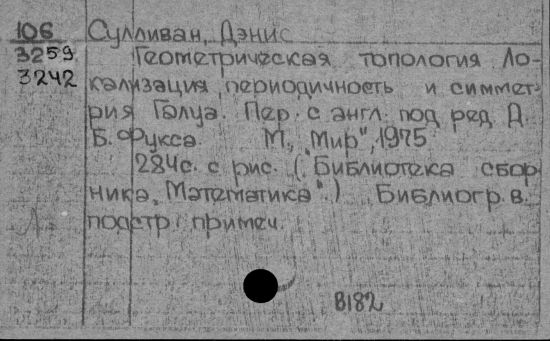 106 Сулливан, Дэнис
3259 Геометрическая топология Ло-
3242 кализация, периодичность и симмет-
рия Галуа. Пер. с англ. под ред. Д.
Б. Фукса. М., "Мир", 1975
284с. с рис. (Библиотека сбор-
ника "Математика".) Библиогр. в.
подстр. примеч.
В182